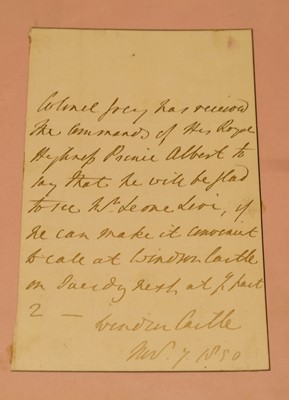 Colonel Grey has received
the Commands of His Royal
Highness Prince Albert to
say that he will be glad
to see Mr Leone Levi, if
he can make it convenient
to call at Windsor Castle
on Tuesday next, at ½ past
2 —
Windsor Castle
Nov. 7. 1850